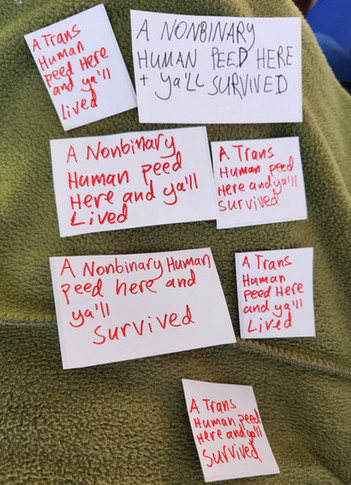 A Trans
Human
peed Here
and ya'll
lived
A NONBINARY
HUMAN PEED HERE
+ ya'LL SURVIVED
A Nonbinary
Human peed
Here and ya'll
Lived
A Trans
Human peed
Here and ya'll
Survived
A Nonbinary Human
peed here and
ya'll
Survived
A Trans
Human
peed Here
and ya'll
Lived
A Trans
Human peed
Here and ya'll
Survived